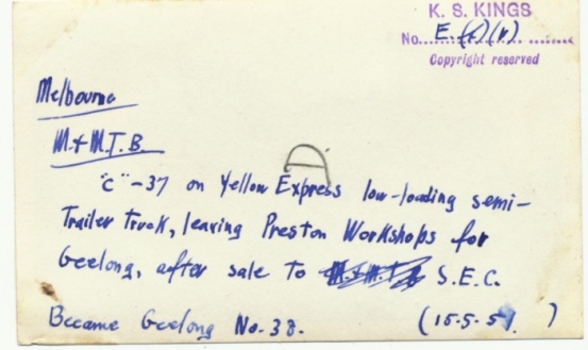 K. S. KINGS
No. E.(c)(v)
Copyright reserved
Melbourne
M.+M.T.B.
A
"C"-37 on Yellow Express low-loading semi-
Trailer Truck, leaving Preston Workshops for
Geelong, after sale to S.E.C.
Became Geelong No. 38.
(15-5-51. )